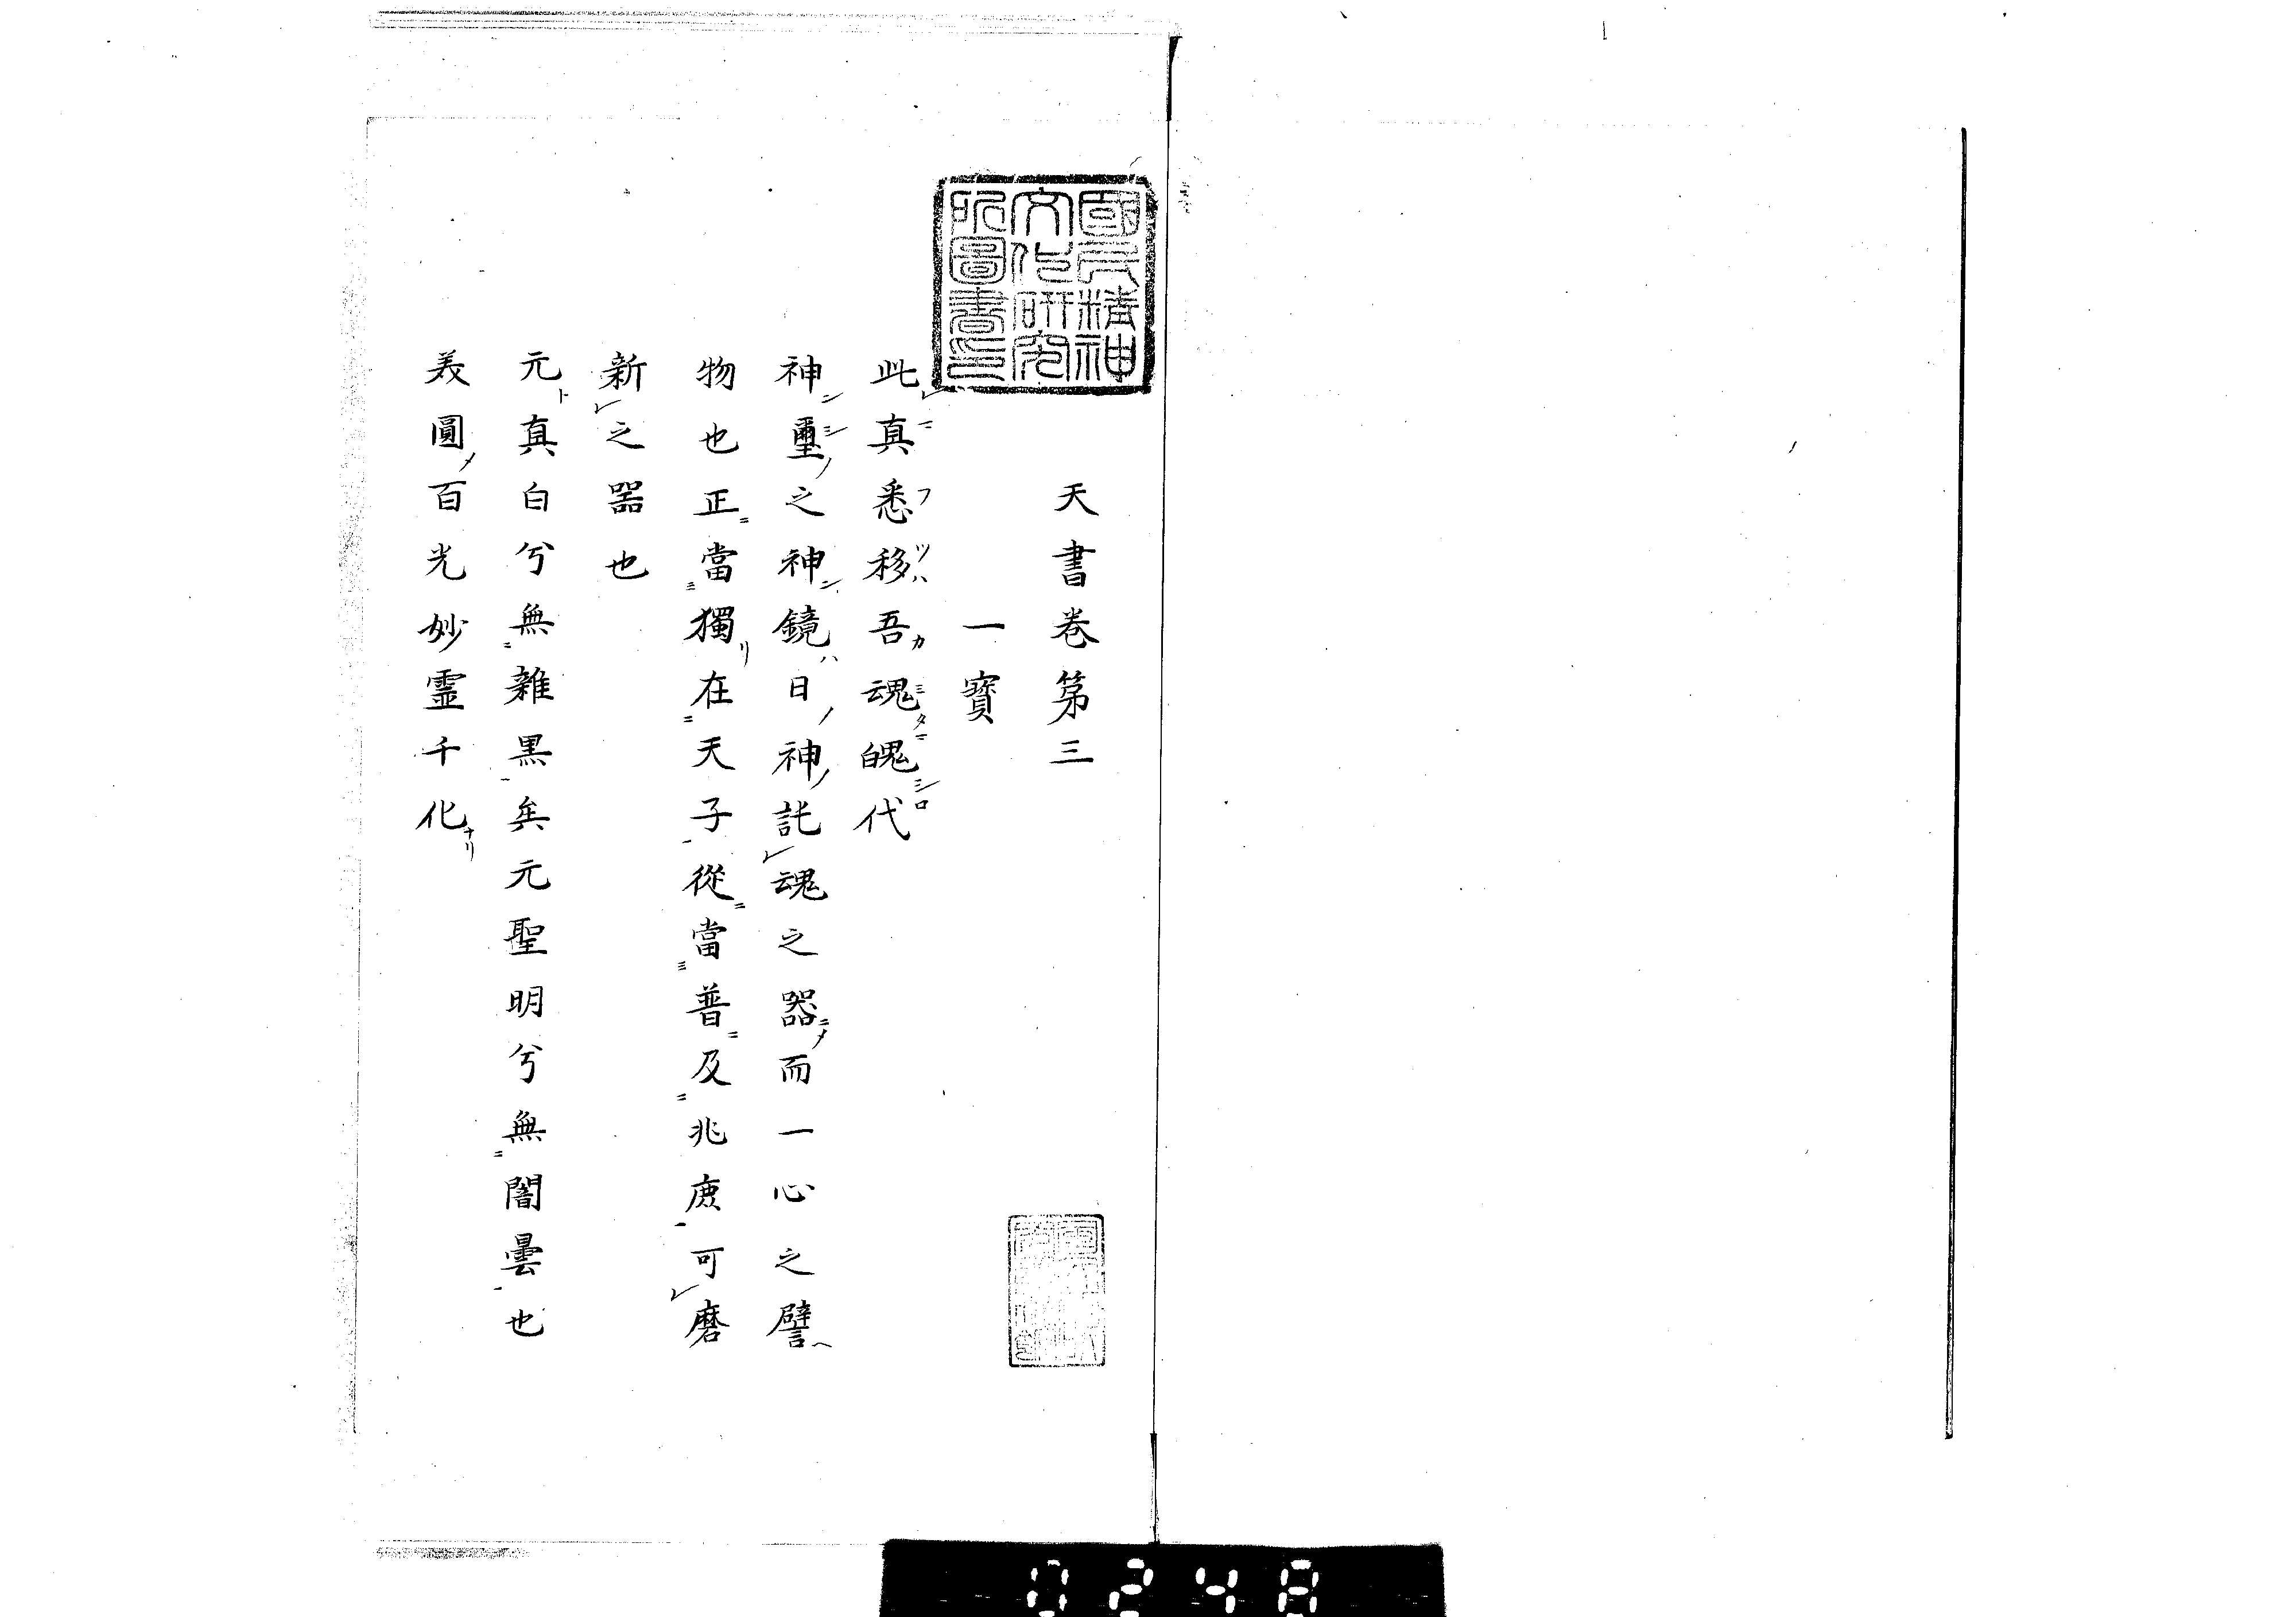 國民精神
文化研究
所圖書印
天書卷第三
一寶
此真悉移吾魂魄代
神璽之神鏡日神託魂之器而一心之譬
物也正當獨在天子從當普及兆庶可磨
新之器也
元真白兮無雜黒矣元聖明兮無闇曇也
義圓百光妙霊千化
0248